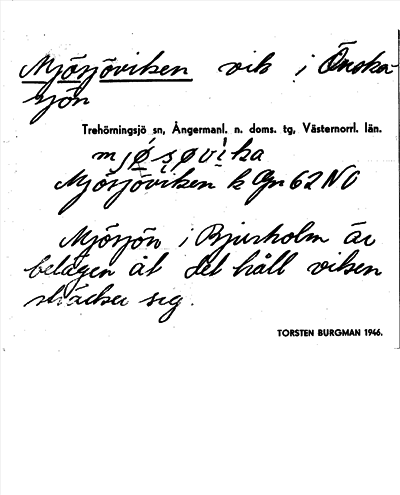 Mjösjöviken vik i Önska-
sjön
Trehörningsjö sn, Ångermanl. n. doms. tg, Västernorrl. län.
mjǿṣøvìka
Mjösjöviken k Gn 62 NO
Mjösjön i Bjurholm är
belägen åt det håll viken
sträcker sig.
TORSTEN BURGMAN 1946.